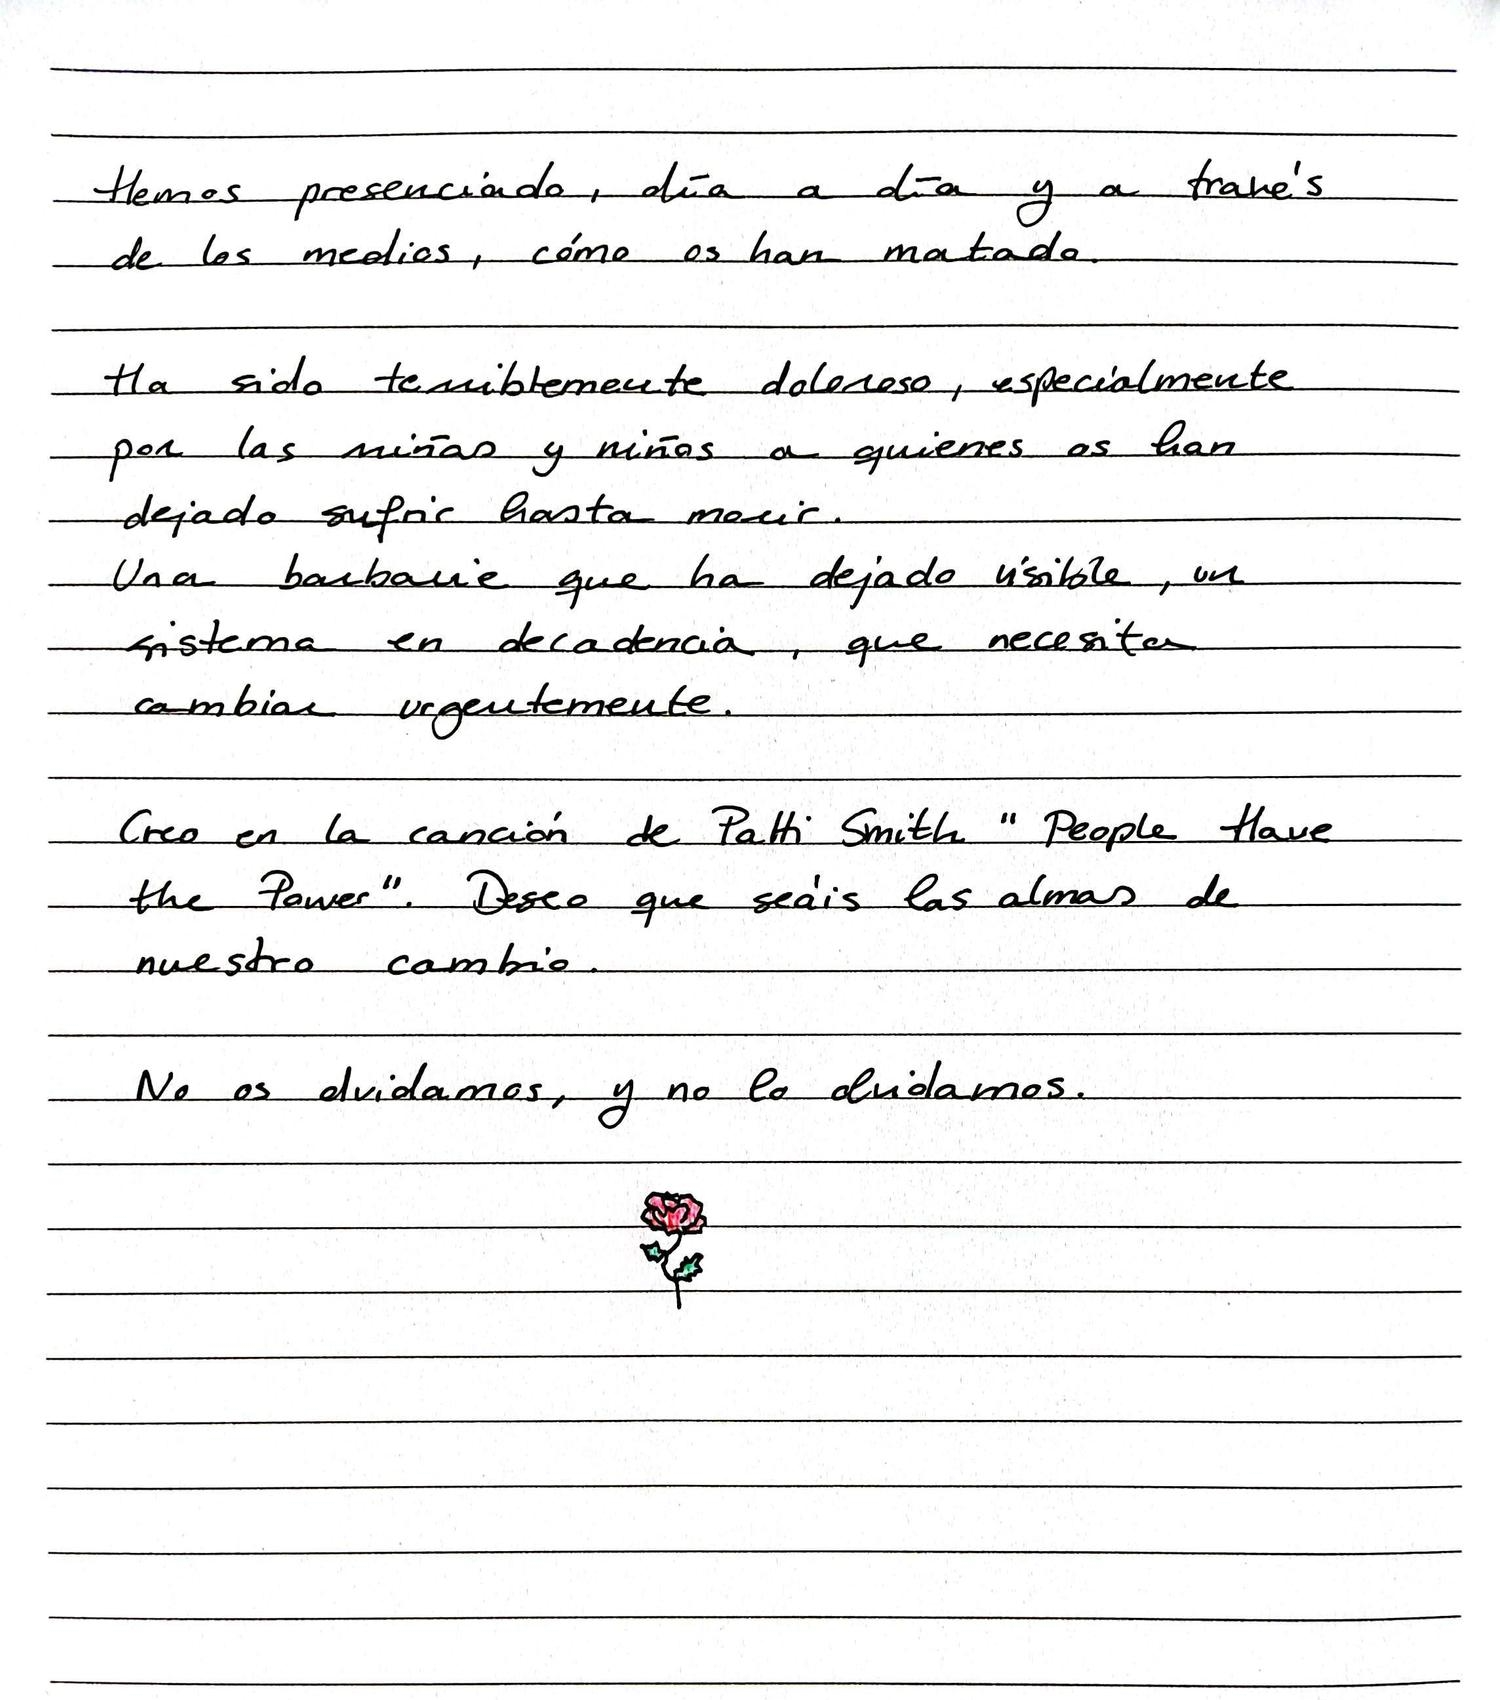 Hemos presenciado, día a día y a través
de los medios, cómo os han matado.
Ha sido terriblemente doloroso, especialmente
por las niñas y niños a quienes os han
dejado sufrir hasta morir.
Una barbarie que ha dejado visible, un
sistema en decadencia, que necesita
cambiar urgentemente.
Creo en la canción de Patti Smith "People Have
the Power". Deseo que seáis las almas de
nuestro cambio.
No os olvidamos, y no lo olvidamos.